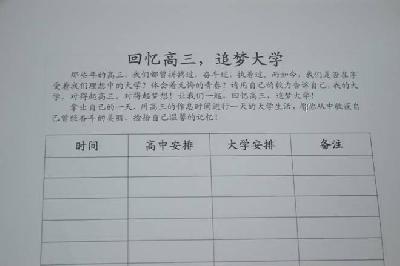 回忆高三，追梦大学
那些年的高三，我们都曾拼搏过，奋斗过，执着过，而如今，我们是否在享
受着我们理想中的大学？体会着无悔的青春？请用自己的毅力告诉自己，我的大
学，对得起高三，对得起梦想！让我们一起，回忆高三，追梦大学！
拿出自己的一天，用高三的作息时间进行一天的大学生活，从中收获自
己曾经奋斗的美丽，拾拾自己温馨的记忆！
时间 高中安排 大学安排 备注